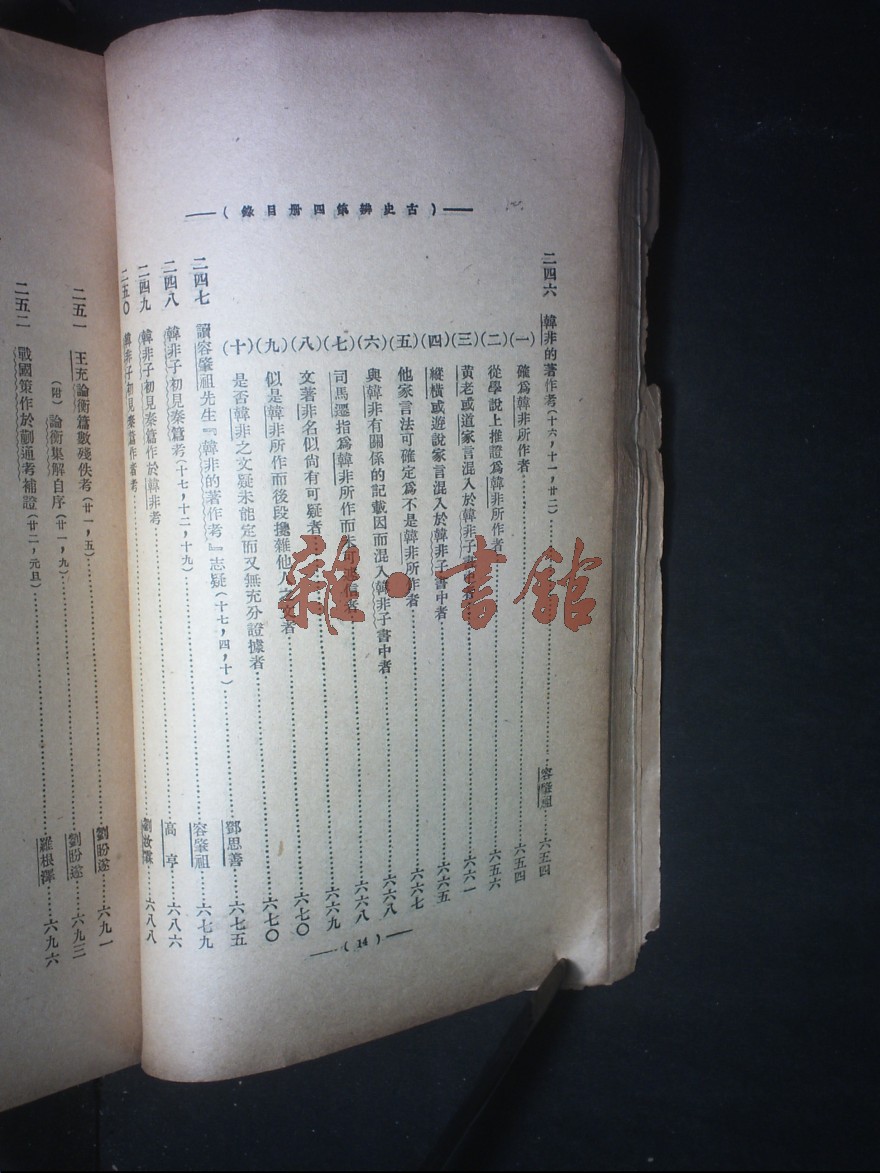 （古史辨第四冊目錄）
二四六 韓非的著作考（十六，十一，廿二）……容肇祖……六五四
（一）確爲韓非所作者……六五四
（二）從學說上推證爲韓非所作者……六五六
（三）黃老或道家言混入於韓非子書中者……六六一
（四）縱橫或遊說家言混入於韓非子書中者……六六五
（五）他家言法可確定爲不是韓非所作者……六六七
（六）與韓非有關係的記載因而混入韓非子書中者……六六八
（七）司馬遷指爲韓非所作而未可遽信者……六六八
（八）文著非名似尚有可疑者……六六九
（九）似是韓非所作而後段攙雜他人之文者……六七〇
（十）是否韓非之文疑未能定而又無充分證據者……六七〇
二四七 讀容肇祖先生『韓非的著作考』志疑（十七，四，十）……鄧思善……六七五
二四八 韓非子初見秦篇考（十七，十二，十九）……容肇祖……六七九
二四九 韓非子初見秦篇作於韓非考……高亨……六八六
二五〇 韓非子初見秦篇作者考……劉汝霖……六八八
（14）
二五一 王充論衡篇數殘佚考（廿一，五）……劉盼遂……六九一
（附）論衡集解自序（廿一，九）……劉盼遂……六九三
二五二 戰國策作於蒯通考補證（廿二，元旦）……羅根澤……六九六
雜·書館